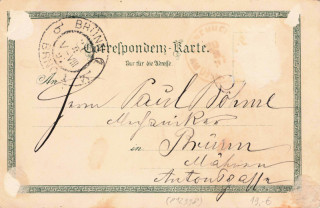 BRÜNN
Correspondenz-Karte.
Nur für die Adresse
An
Herrn Paul Böhme
Mechaniker
in
Brünn
Mähren
Antonsgasse